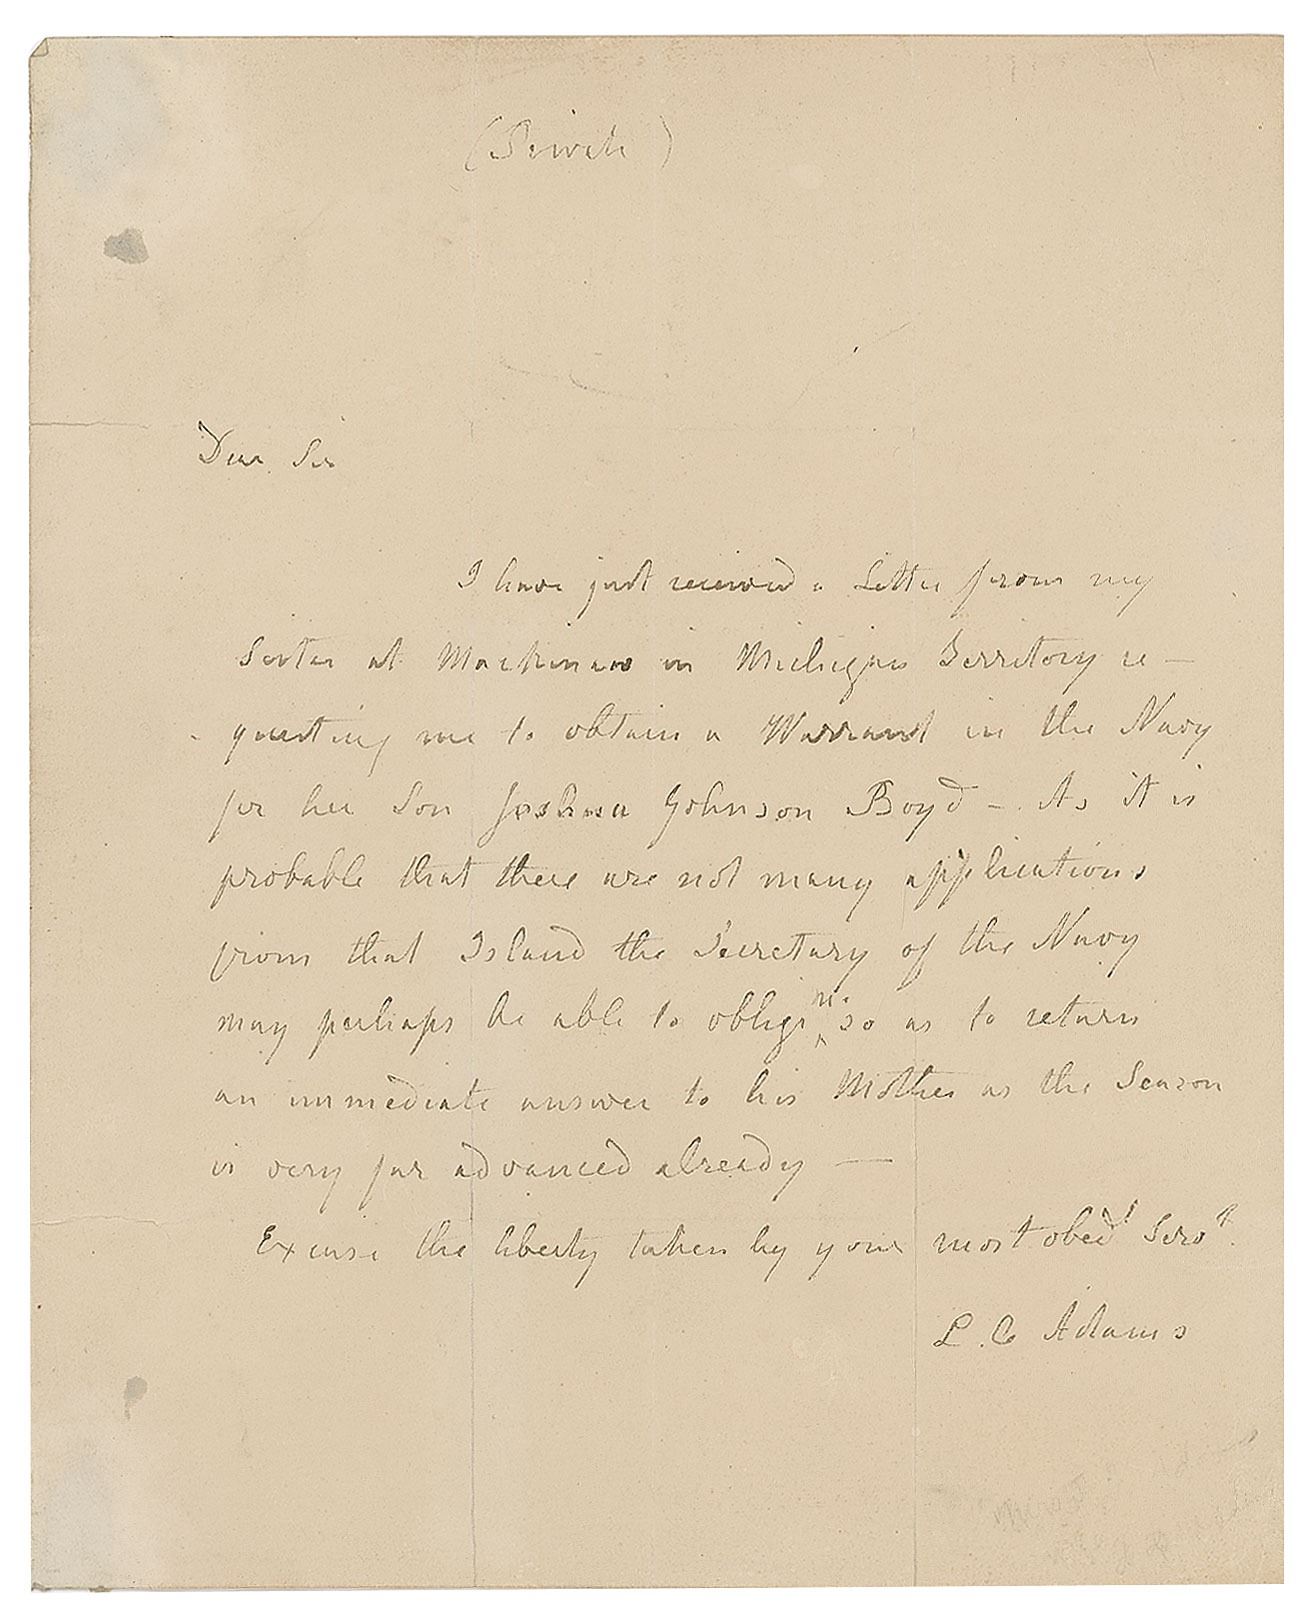 (Private)
Dear Sir
I have just received a Letter from my
Sister at Mackinaw in Michigan Territory re-
questing me to obtain a Warrant in the Navy
for her Son Joshua Johnson Boyd - As it is
probable that there are not many applications
from that Island the Secretary of the Navy
may perhaps be able to oblige me so as to return
an immediate answer to his Mother as the Season
is very far advanced already —
Excuse the liberty taken by your most obedt Servt.
L. C Adams